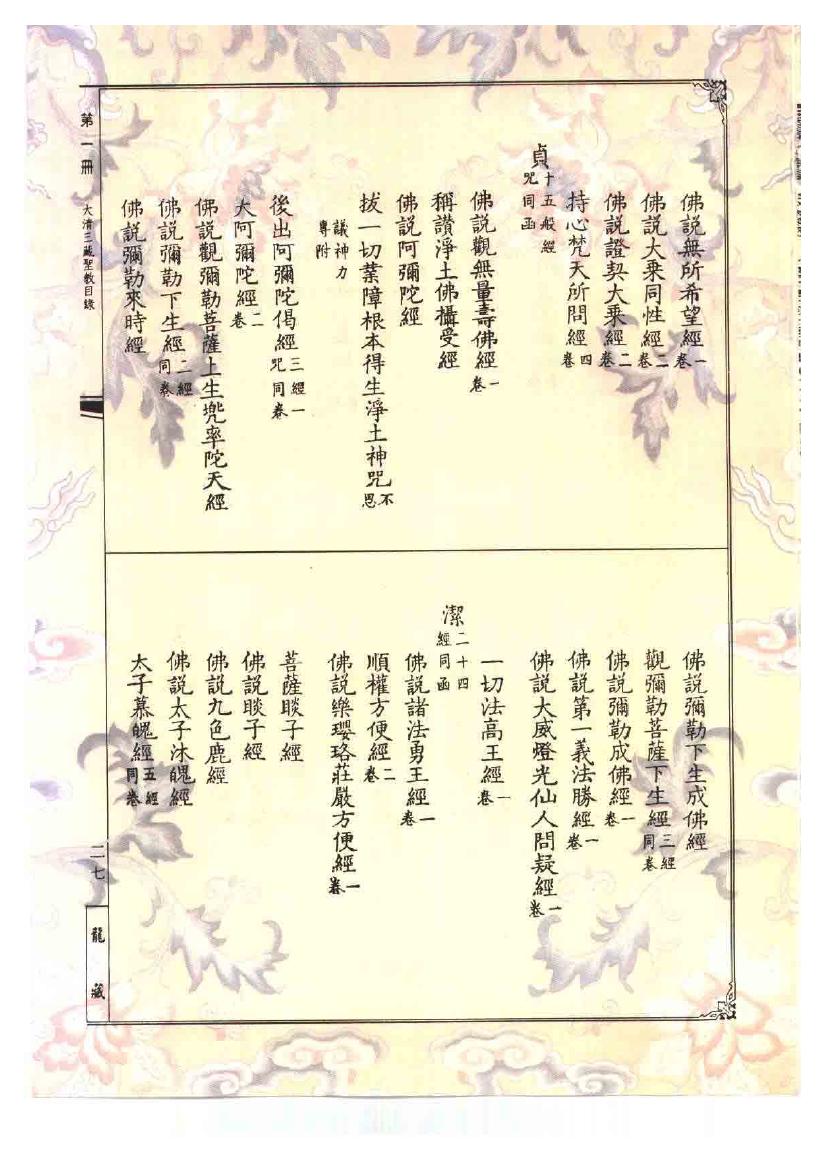 佛說無所希望經一卷
佛說大乘同性經二卷
佛說證契大乘經二卷
持心梵天所問經四卷
貞十五般經咒同函
佛說觀無量壽佛經一卷
稱讚淨土佛攝受經
佛說阿彌陀經
拔一切業障根本得生淨土神咒不思
議神力專附
後出阿彌陀偈經三經一咒同卷
大阿彌陀經二卷
佛說觀彌勒菩薩上生兜率陀天經
佛說彌勒下生經二經同卷
佛說彌勒來時經
佛說彌勒下生成佛經
觀彌勒菩薩下生經三經同卷
佛說彌勒成佛經一卷
佛說第一義法勝經一卷
佛說大威燈光仙人問疑經一卷
一切法高王經一卷
潔二十四經同函
佛說諸法勇王經一卷
順權方便經二卷
佛說樂瓔珞莊嚴方便經一卷
菩薩睒子經
佛說睒子經
佛說九色鹿經
佛說太子沐魄經
太子慕魄經五經同卷
第一冊 大清三藏聖教目錄
二七
龍藏